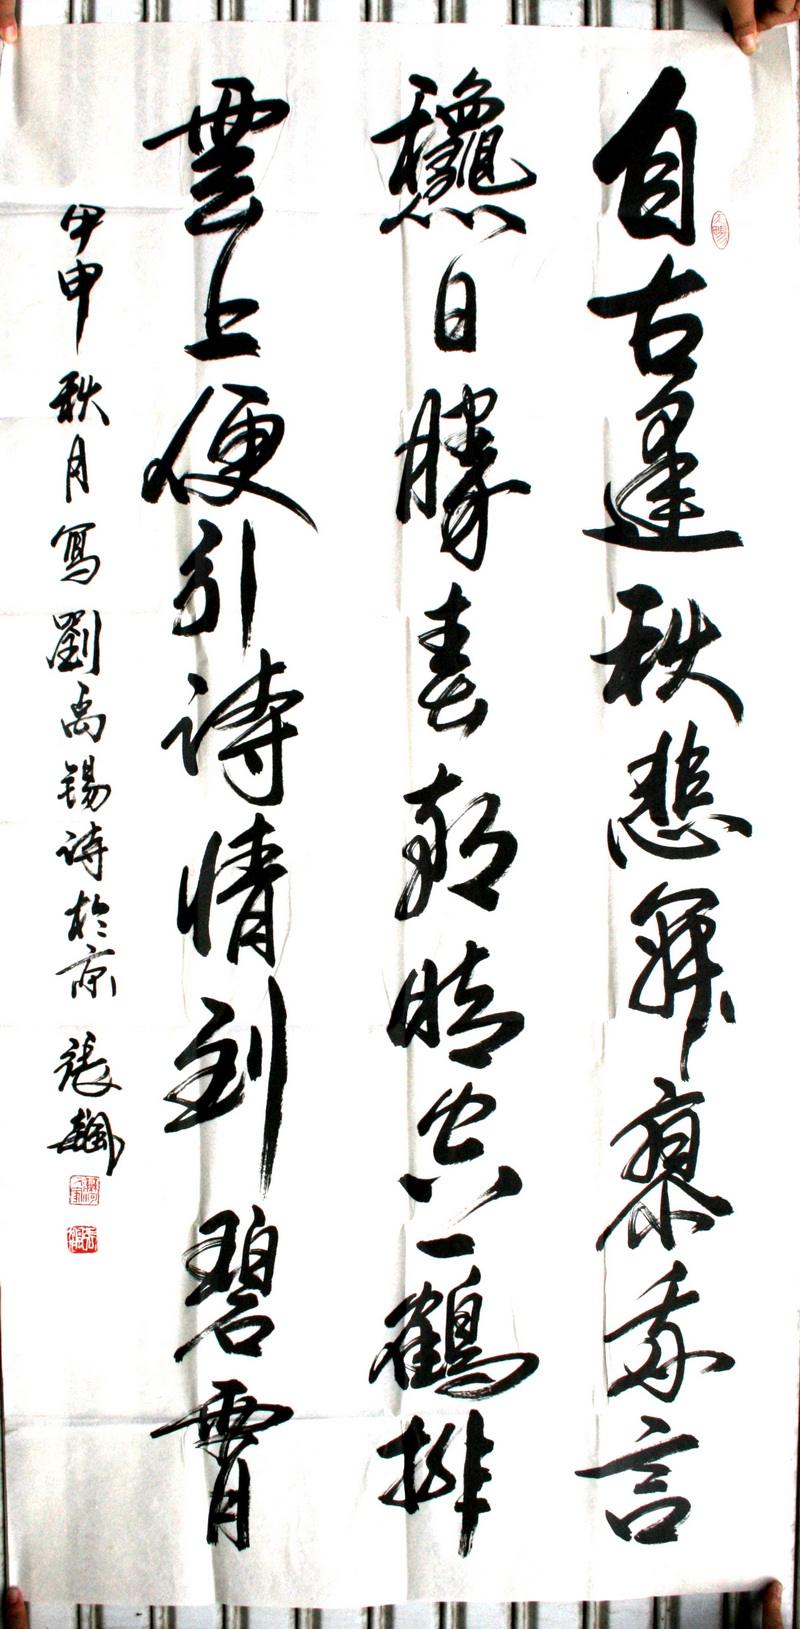 自古逢秋悲寂寥我言
龝日勝春朝晴空一鶴排
雲上便引詩情到碧霄
甲申秋月寫劉禹錫詩於京 張飆